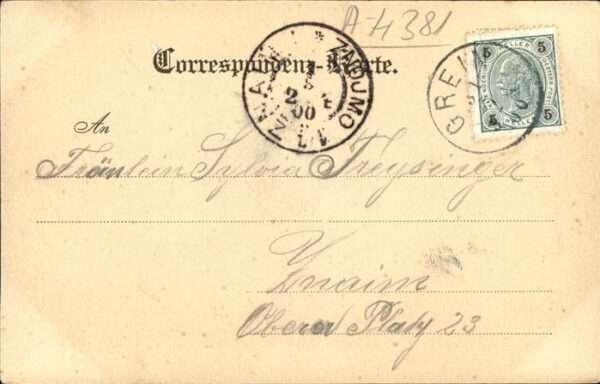 A-4381
Correspondenz-Karte.
ZNAIM ZNOJMO
00
GREIN
5 HELLER 5
5 5
An
Fräulein Sylvia Freysinger
Znaim
Oberer Platz 23